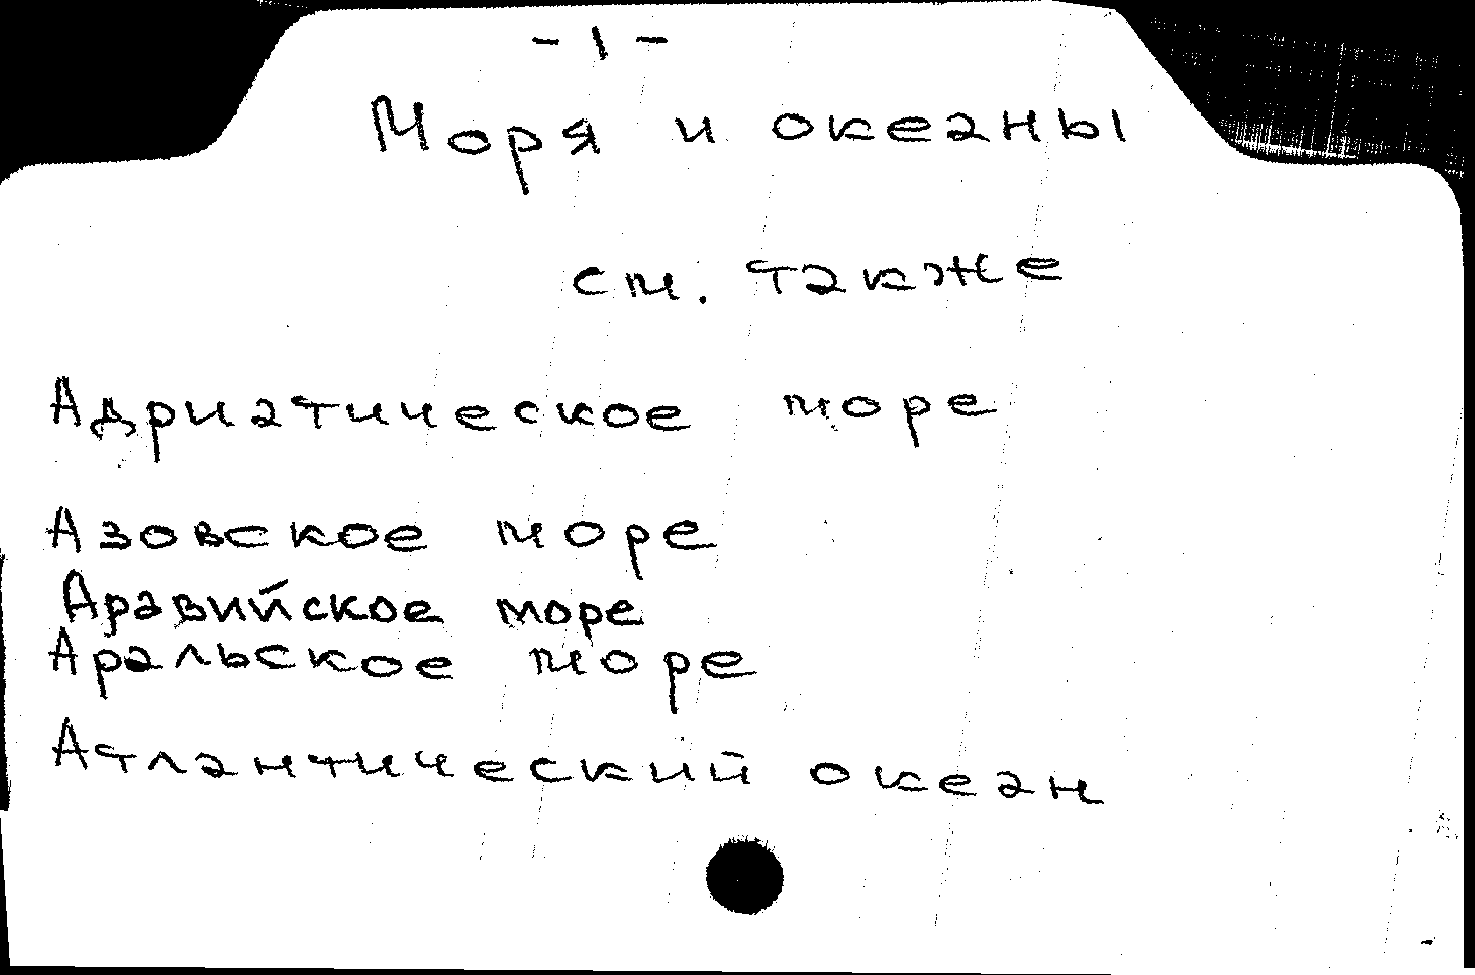 - 1 -
Моря и океаны
см. также
Адриатическое море
Азовское море
Аравийское море
Аральское море
Атлантический океан